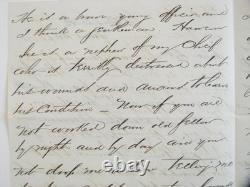 He is a brave young officer and
I think a gentleman
he is a nephew of my Chief
who is terribly distressed about
his wounds and anxious to learn
his Condition – Now if you are
not worked down old fellow
by night and by day and you
not drop me telling me